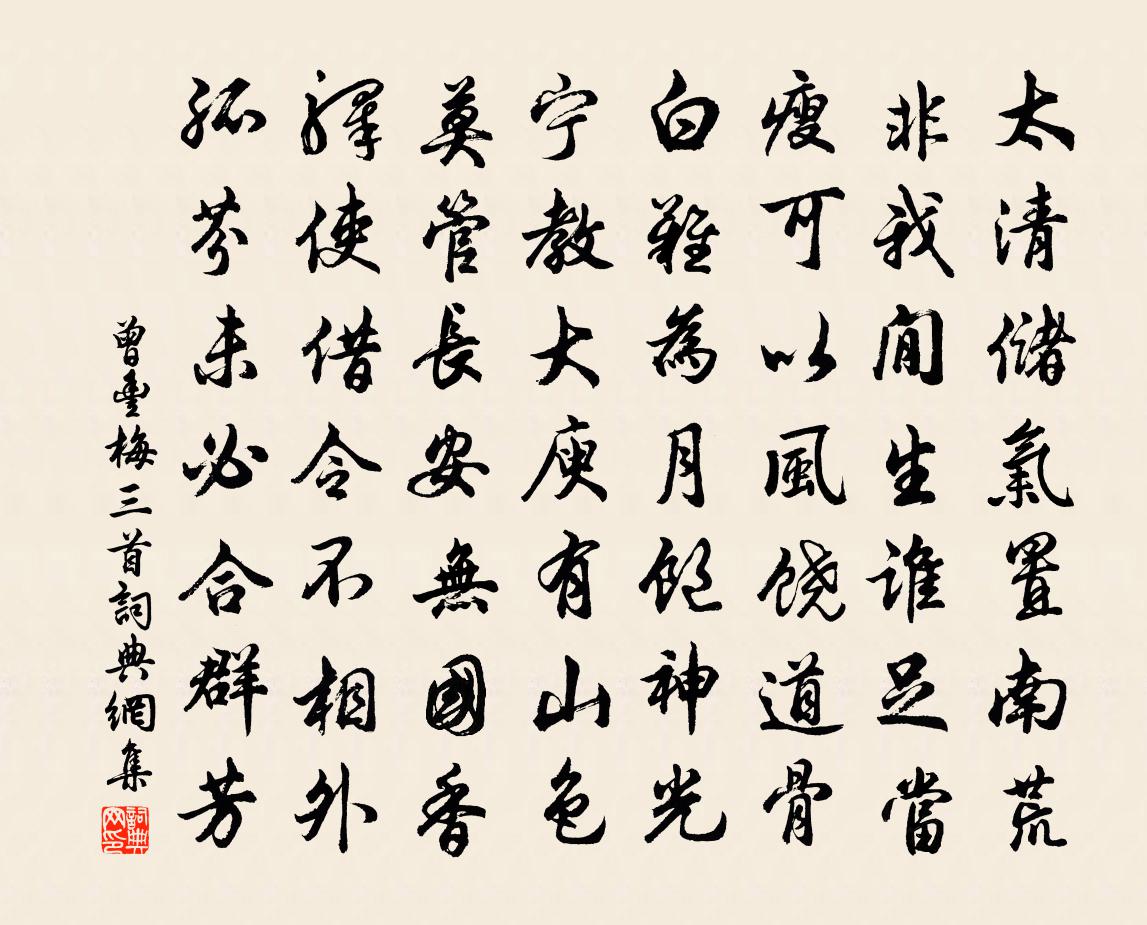 太清儲氣置南荒
非我閒生誰足當
瘦可以風饒道骨
白難為月飽神光
宁教大庾有山色
莫管長安無國香
驛使借令不相外
孤芬未必合群芳
曾豐梅三首詞典網集
詞典网印